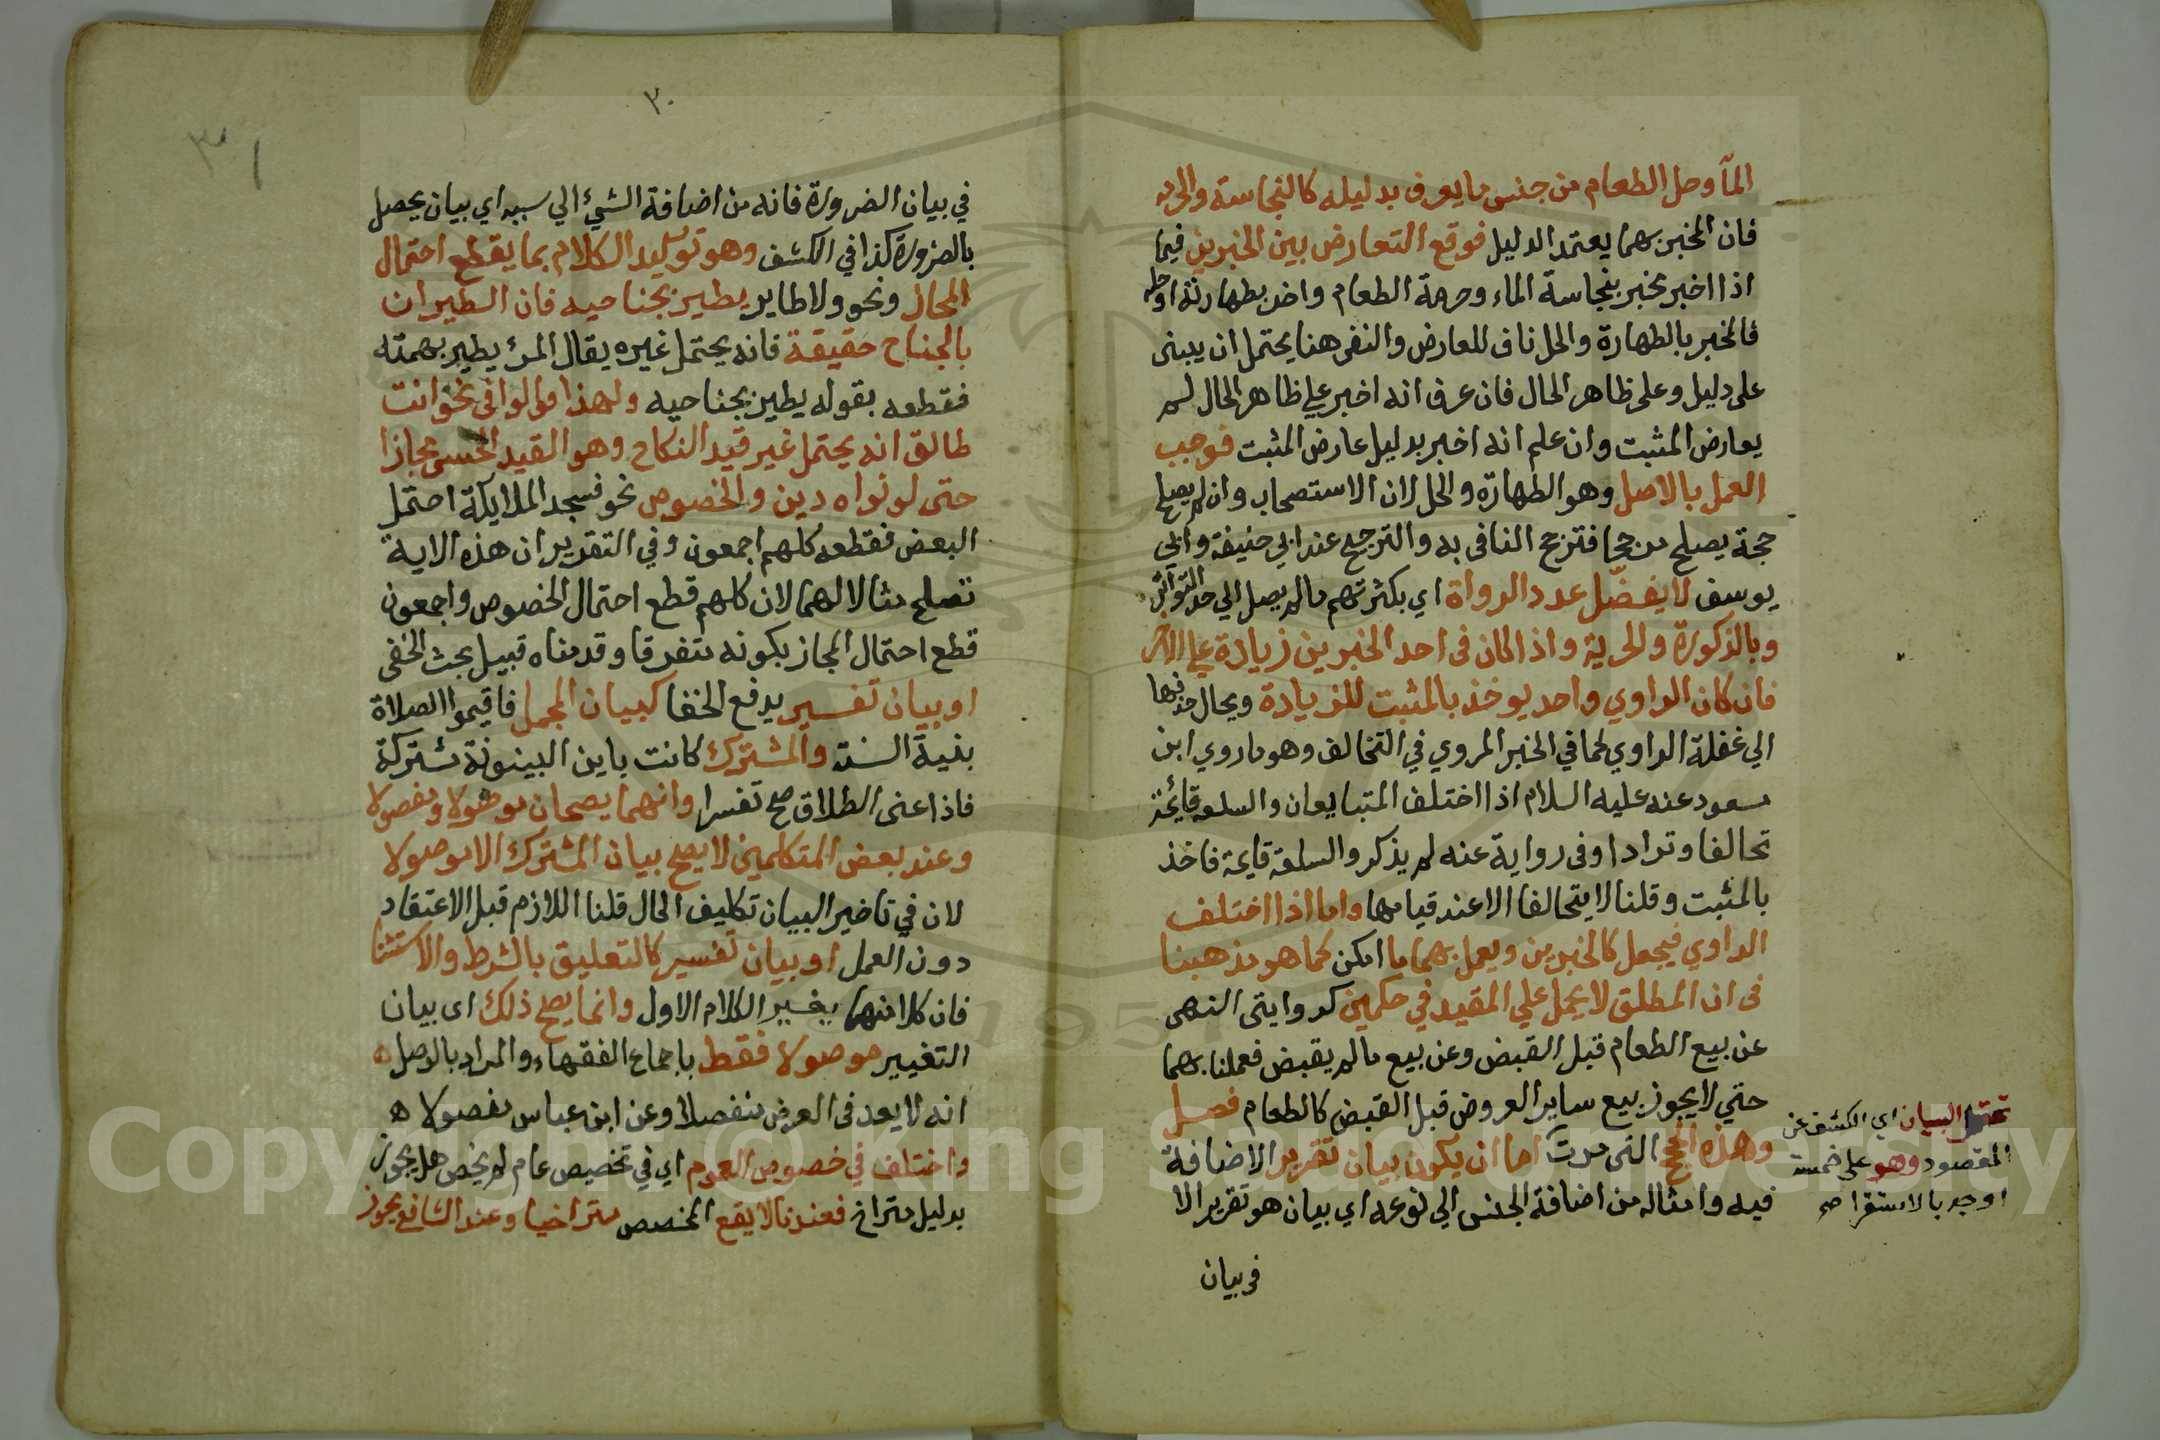 المآ وحل الطعام من جنس ما يعرف بدليله كالنجاسة والحرمة
فان المخبر بهما يعتمد الدليل فوقع التعارض بين الخبرين فيما
اذا اخبر مخبر بنجاسة الماء وحرمة الطعام واخر بطهارته او حله
فالمخبر بالطهارة والحل ناف للعارض والنفي هنا يحتمل ان يبنى
على دليل وعلى ظاهر الحال فان عرف انه اخبر علي ظاهر الحال لم
يعارض المثبت وان علم انه اخبر بدليل عارض المثبت فوجب
العمل بالاصل وهو الطهارة والحل لان الاستصحاب وان لم يصلح
حجة يصلح مرجحا فترجح النافى به والترجيح عند ابي حنيفة وابي
يوسف لا يفضل عدد الرواة اي بكثرتهم ما لم يصل الي حد التواتر
وبالذكورة والحرية واذا كان فى احد الخبرين زيادة علي الاخر
فان كان الراوي واحد يوخذ بالمثبت للزيادة ويحال حذفها
الي غفلة الراوي كما في الخبر المروي في التحالف وهو ما روي ابن
مسعود عنه عليه السلام اذا اختلف المتبايعان والسلعة قائمة
تحالفا وترادا وفى رواية عنه لم يذكر والسلعة قايمة فاخذ
بالمثبت وقلنا لا يتحالفا الا عند قيامها واما اذا اختلف
الراوي فيجعل كالخبرين ويعمل بهما ما امكن كما هو مذهبنا
فى ان المطلق لا يحمل علي المقيد في حكمين كروايتى النهى
عن بيع الطعام قبل القبض وعن بيع ما لم يقبض فعملنا بهما
حتي لا يجوز بيع ساير العروض قبل القبض كالطعام فصل
وهذه الحجج التى مرت تحتمل البيان اي الكشف عن
المقصود وهو على خمسة
اوجه بالاستقرا صح
اما ان يكون بيان تقرير الاضافة
فيه وامثاله من اضافة الجنس الي نوعه اي بيان هو تقرير الا
فى بيان
٣٠
٣١
في بيان الضرورة فانه من اضافة الشيء الي سببه اي بيان يحصل
بالضرورة كذا في الكشف وهو توكيد الكلام بما يقطع احتمال
المجاز ونحو ولا طاير يطير بجناحيه فان الطيران
بالجناح حقيقة فانه يحتمل غيره يقال المرء يطير بهمته
فقطعه بقوله يطير بجناحيه ولهذا قالوا فى نحو انت
طالق انه يحتمل غير قيد النكاح وهو القيد الحسى مجازا
حتى لو نواه دين والخصوص نحو فسجد الملايكة احتمل
البعض فقطعه كلهم اجمعون وفي التقرير ان هذه الاية
تصلح مثالا لهما لان كلهم قطع احتمال الخصوص واجمعون
قطع احتمال المجاز بكونه متفرقا وقدمناه قبيل بحث الخفى
او بيان تفسير يدفع الخفا كبيان المجمل فاقيموا الصلاة
بنية السنة والمشترك كانت باين البينونة مشتركة
فاذا عنى الطلاق صح تفسرا وانهما يصحان موصولا ومفصولا
وعند بعض المتكلمين لا يصح بيان المشترك الا موصولا
لان في تاخير البيان تكليف الحال قلنا اللازم قبل الاعتقاد
دون العمل او بيان تفسير كالتعليق بالشرط والاستثنا
فان كلا منهما يغير الكلام الاول وانما يصح ذلك اى بيان
التغيير موصولا فقط باجماع الفقهاء والمراد بالوصل ه
انه لا يعد فى العرض منفصلا وعن ابن عباس مفصولا ه
واختلف في خصوص العموم اي في تخصيص عام لم يخص هل يجوز
بدليل متراخ فعندنا لا يقع المخصص متراخيا وعند الشافع يجوز
Copyright © King Saud University
1957